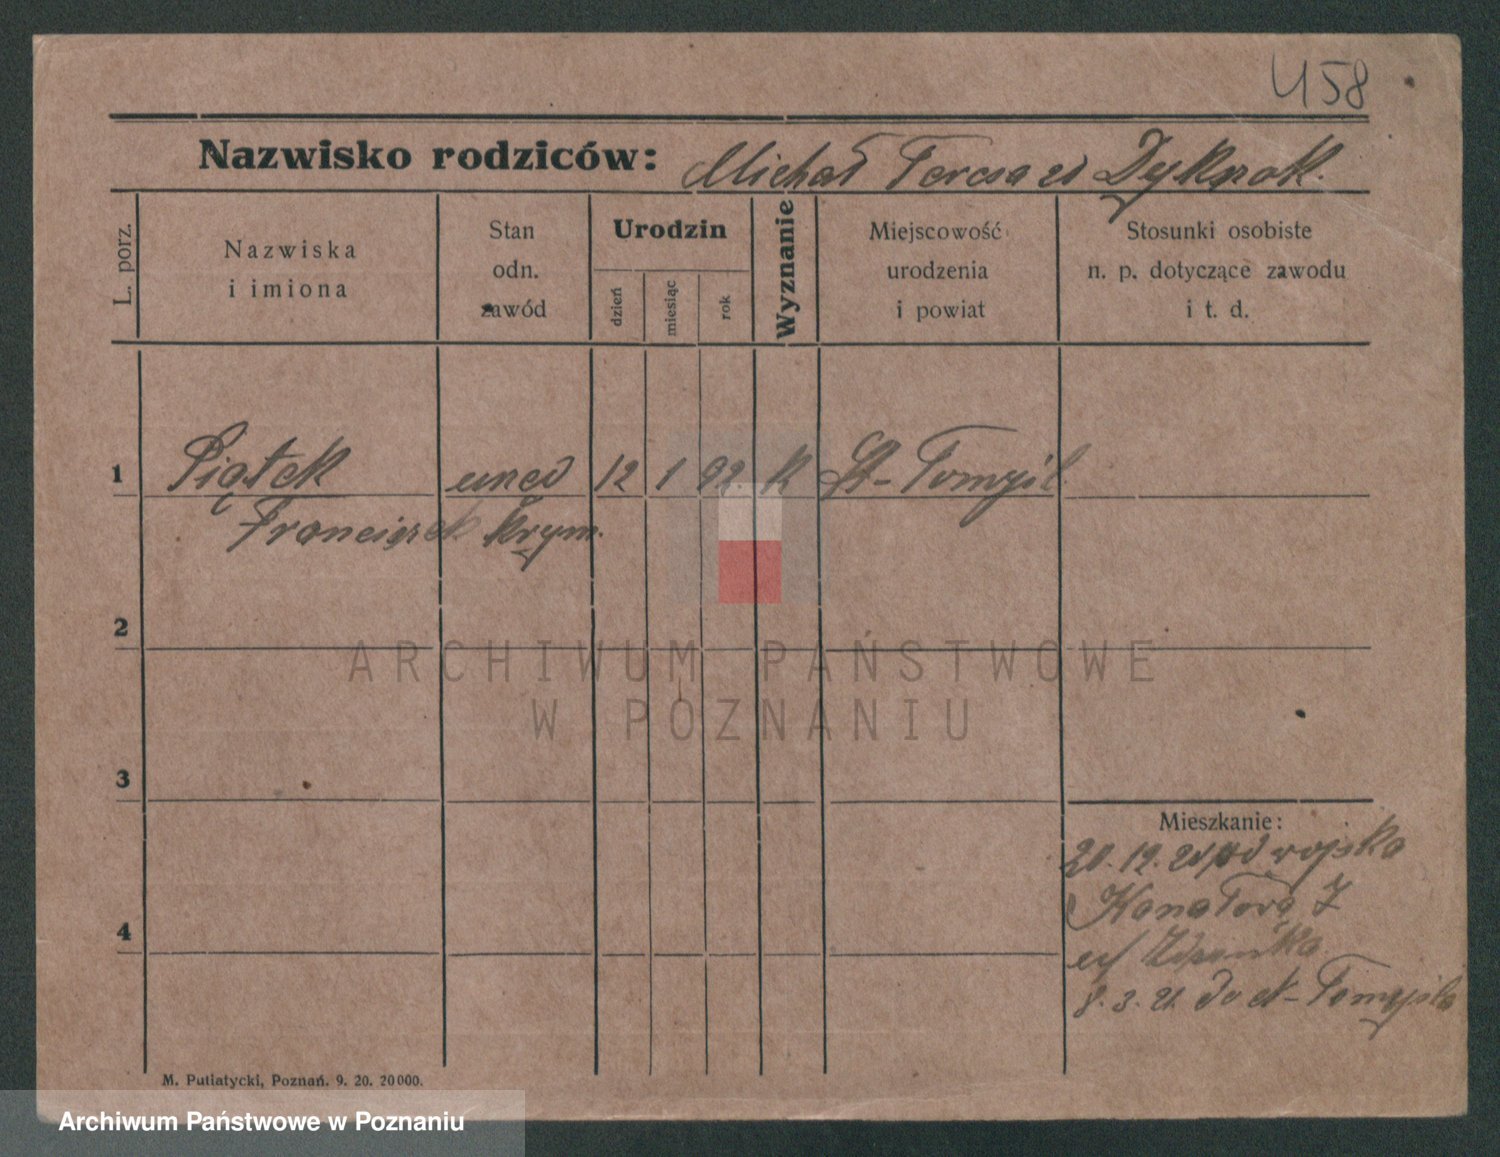 458
Nazwisko rodziców: Michał Teresa
L. porz.
Nazwiska
i imiona
Stan
odn.
zawód
Urodzin
dzień
miesiąc
rok
Wyznanie
Miejscowość
urodzenia
i powiat
Stosunki osobiste
n. p. dotyczące zawodu
i t. d.
1 Piątek 12 1 92 k St-Tomyśl
Franciszek krym.
2
3
4
Mieszkanie:
od wojska
8. 3. 21. do N-Tomyśla
M. Putiatycki, Poznań. 9. 20. 20000.
ARCHIWUM PAŃSTWOWE
W POZNANIU
Archiwum Państwowe w Poznaniu